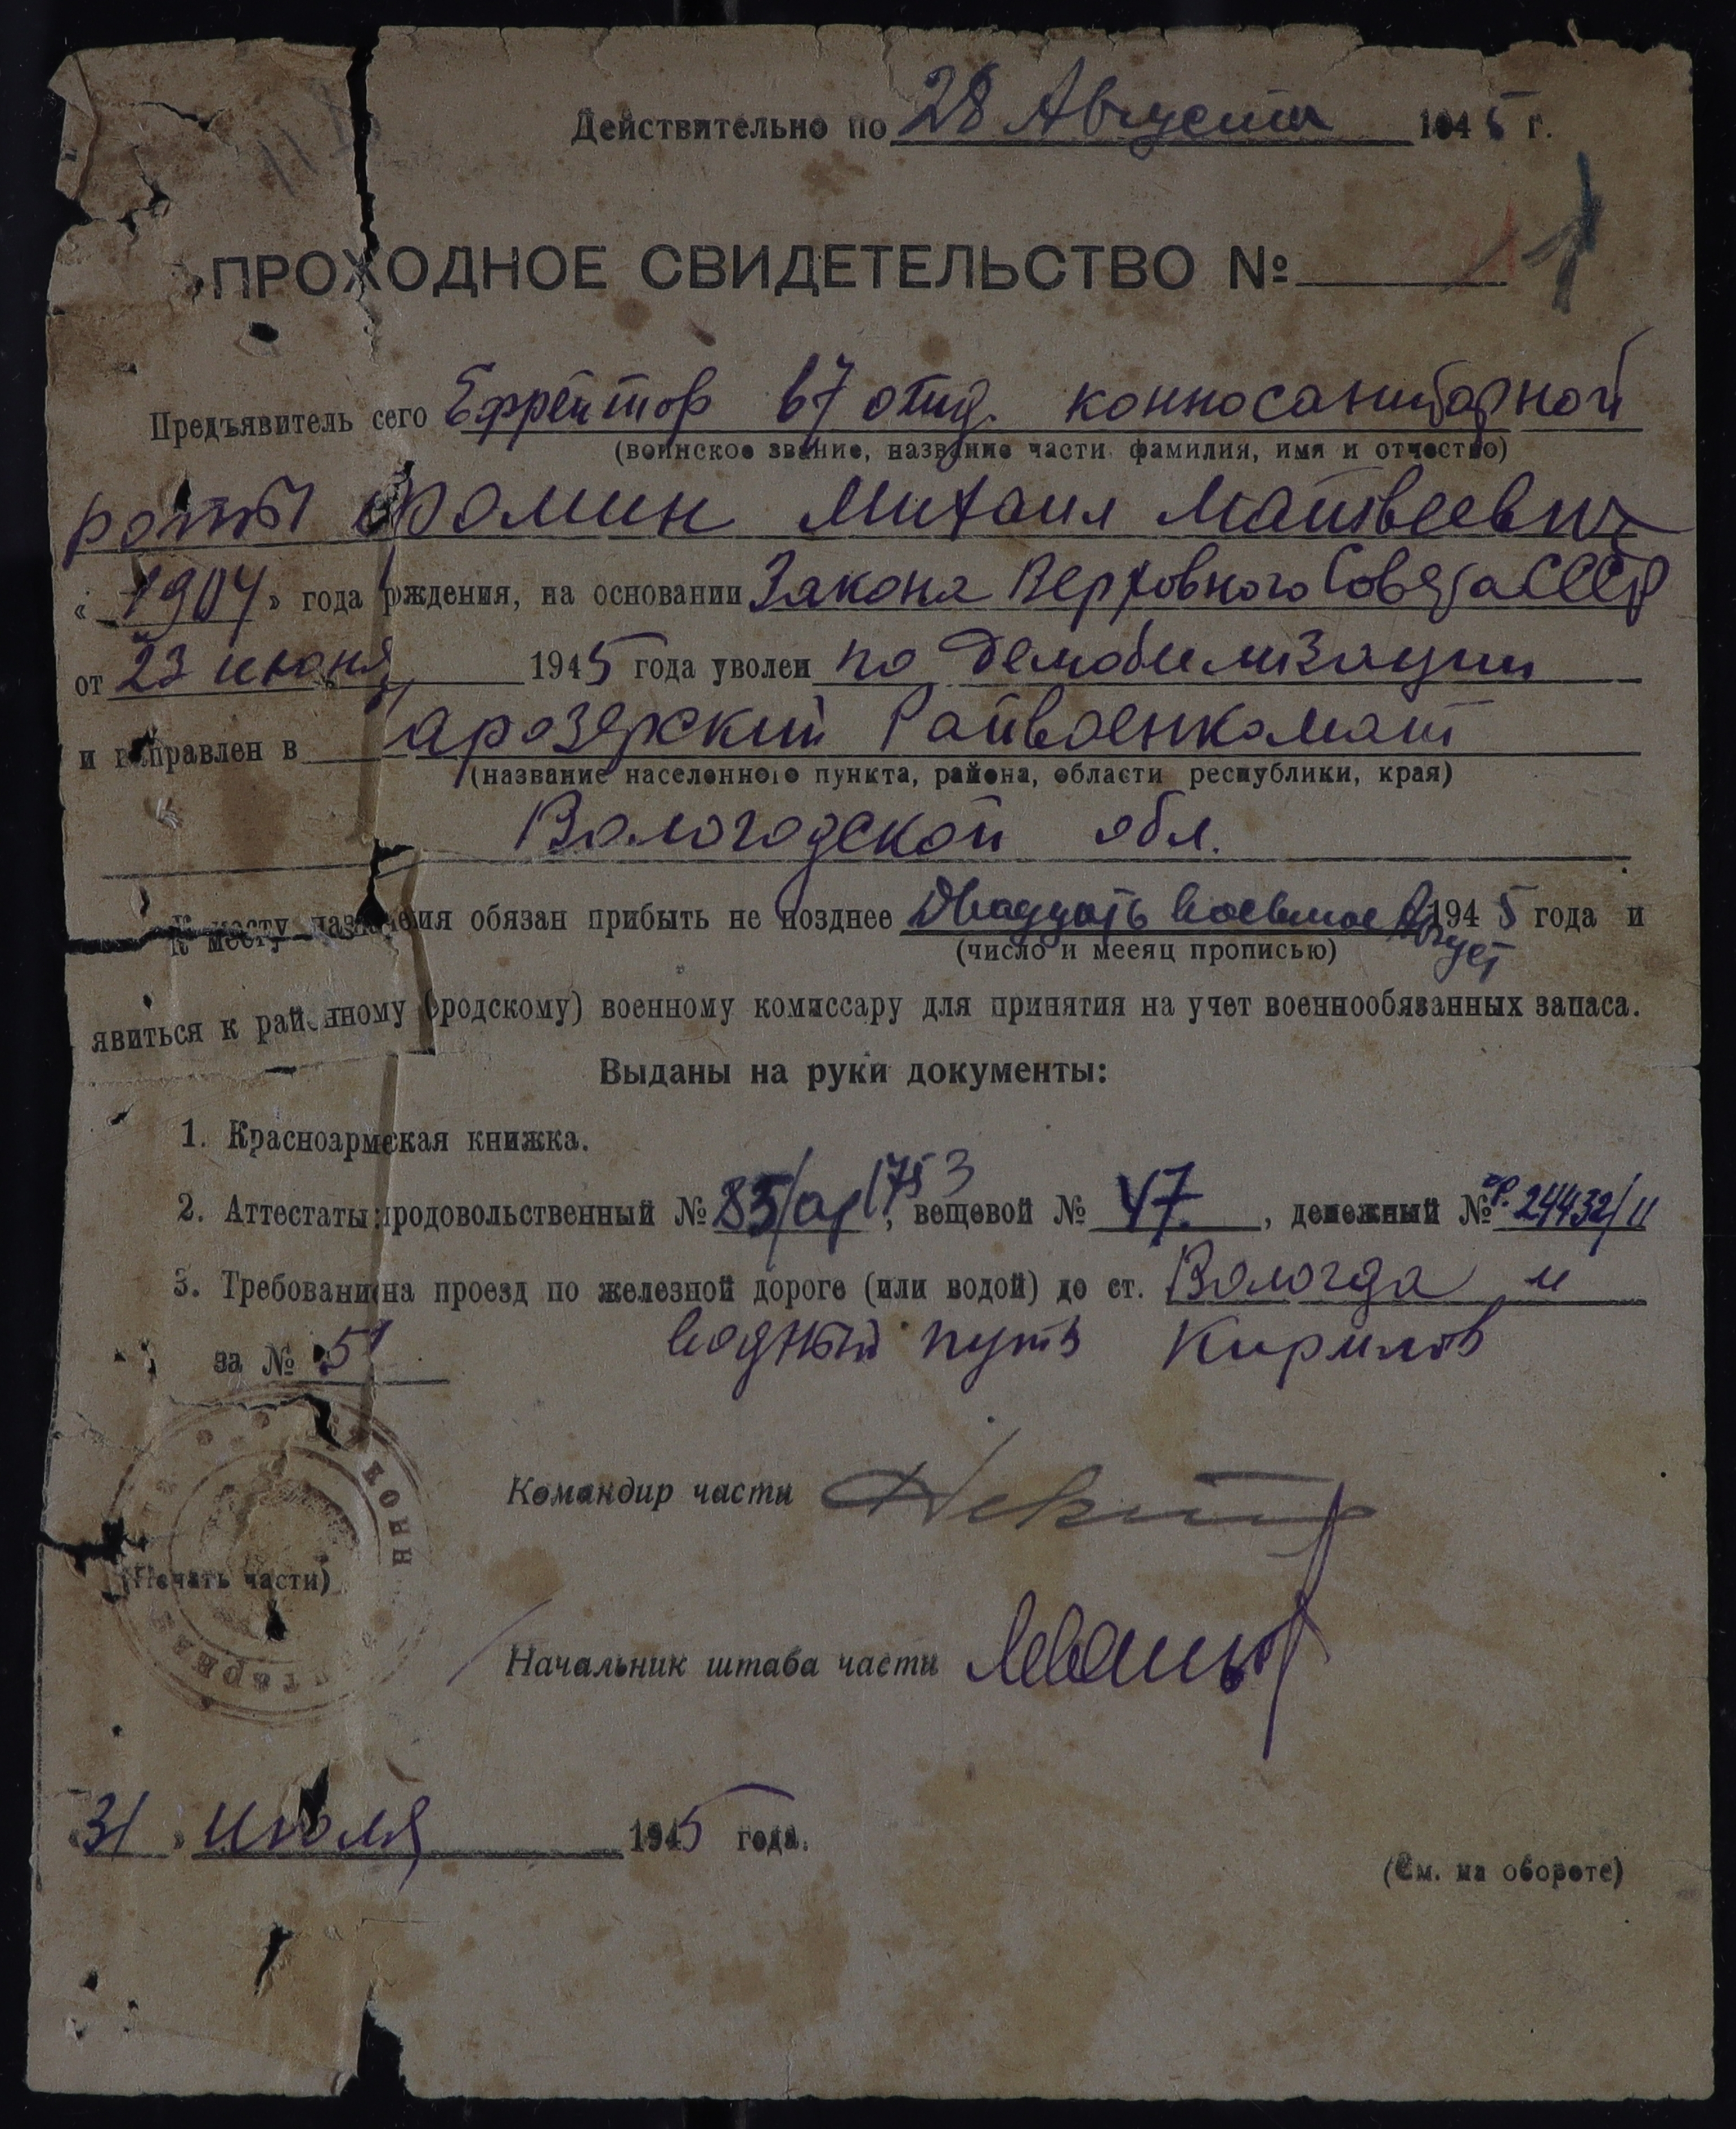 Действительно по 28 Августа 1945 г.
ПРОХОДНОЕ СВИДЕТЕЛЬСТВО №
Предъявитель сего Ефрейтор 67 отд. конносанитарной
(воинское звание, название части фамилия, имя и отчество)
роты Фомин Михаил Матвеевич
« 1904 » года рждения, на основании Закона Верховного Совета СССР
от 23 июня 1945 года уволен по демобилизации
и направлен в арозерский Райвоенкомат
(название населенного пункта, района, области республики, края)
Вологодской обл.
К месту назначения обязан прибыть не позднее Двадцать восьмое Август 1945 года и
(число и месяц прописью)
явиться к районному (ородскому) военному комиссару для принятия на учет военнообязанных запаса.
Выданы на руки документы:
1. Красноармская книжка.
2. Аттестаты: продовольственный № 85/ар 1753, вещевой № 47, денежный № 24432/
3. Требовани на проезд по железной дороге (или водой) до ст. Вологда и
за № 51 водный путь Кирилов
Командир части
(Печать части)
Начальник штаба части
«31» июля 1945 года.
(См. на обороте)